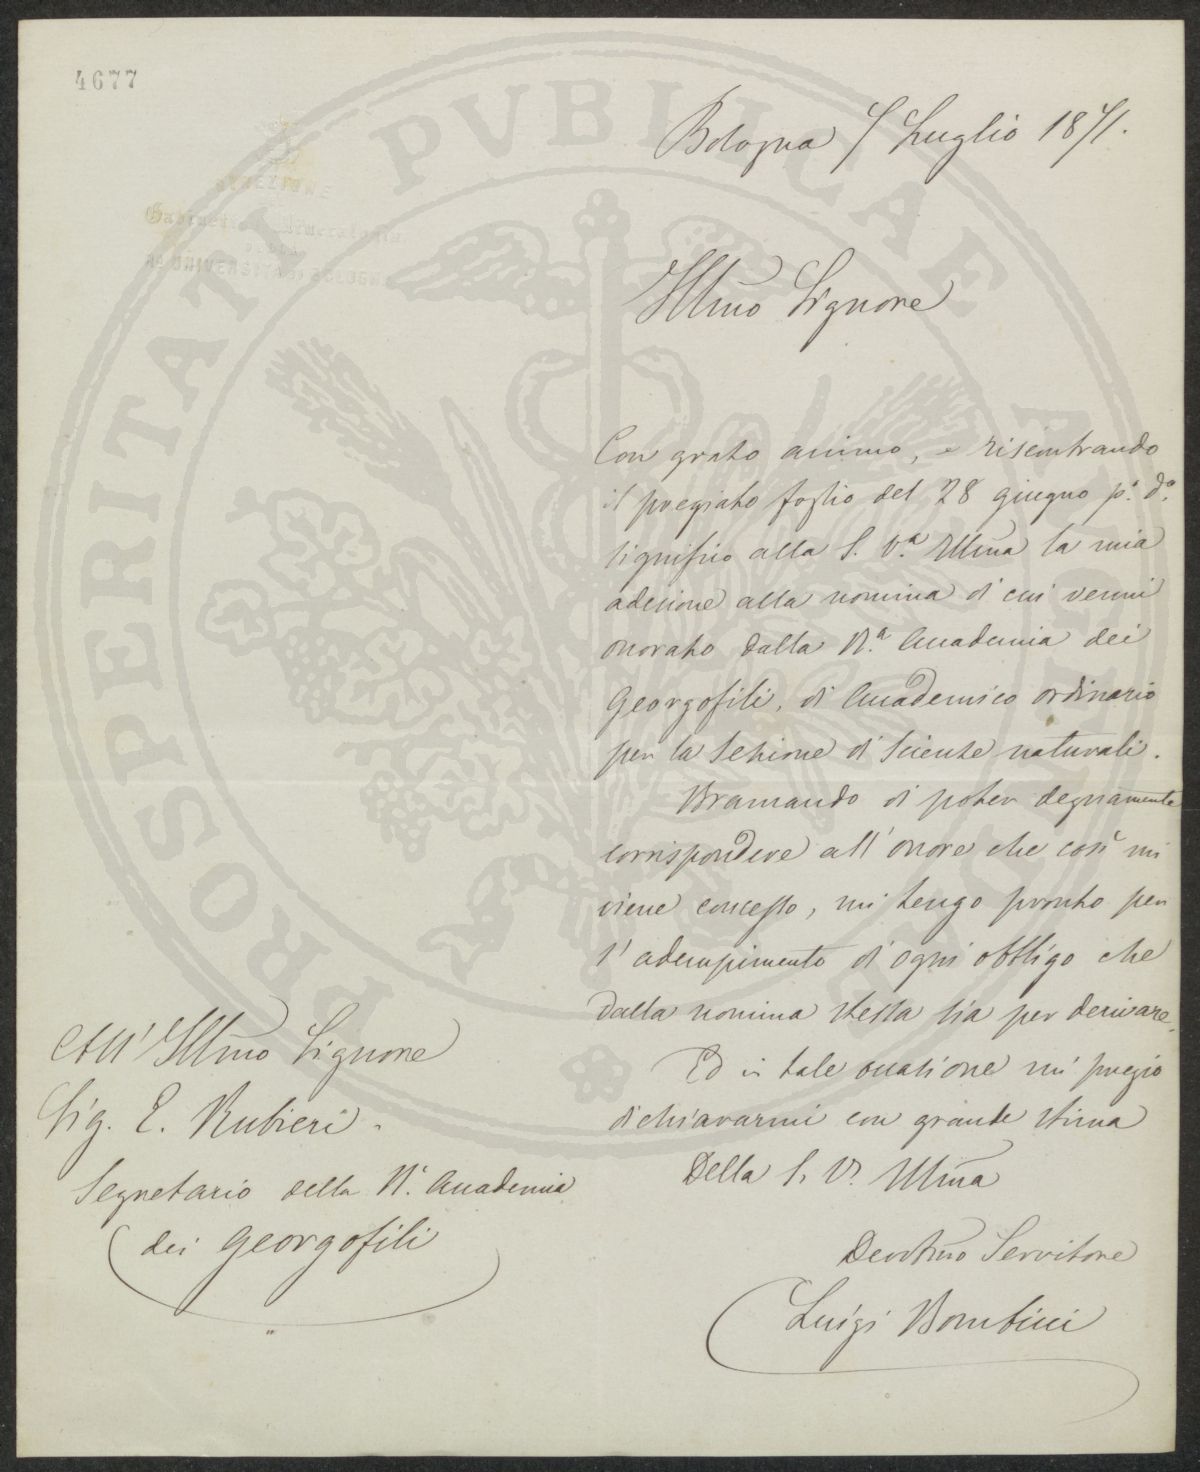 4677
DIREZIONE
Gabinetto di Mineralogia
DELLA
Ra. UNIVERSITÀ DI BOLOGNA
PROSPERITATI PVBLICAE
Bologna 7 Luglio 1871.
Illmo Signore
Con grato animo, e riscontrando
il pregiato foglio del 28 giugno p.º d.º
significo alla S. V.ª Illma la mia
adesione alla nomina di cui venni
onorato dalla R.ª Accademia dei
Georgofili, di Accademico ordinario
per la Sezione di Scienze naturali.
Bramando di poter degnamente
corrispondere all'onore che così mi
viene concesso, mi tengo pronto per
l'adempimento di ogni obbligo che
dalla nomina stessa sia per derivare.
Ed in tale occasione mi pregio
dichiararmi con grande stima
Della S. V. Illma
Devotmo Servitore
Luigi Bombicci
All'Illmo Signore
Sig. E. Rubieri.
Segretario della R. Accademia
dei Georgofili